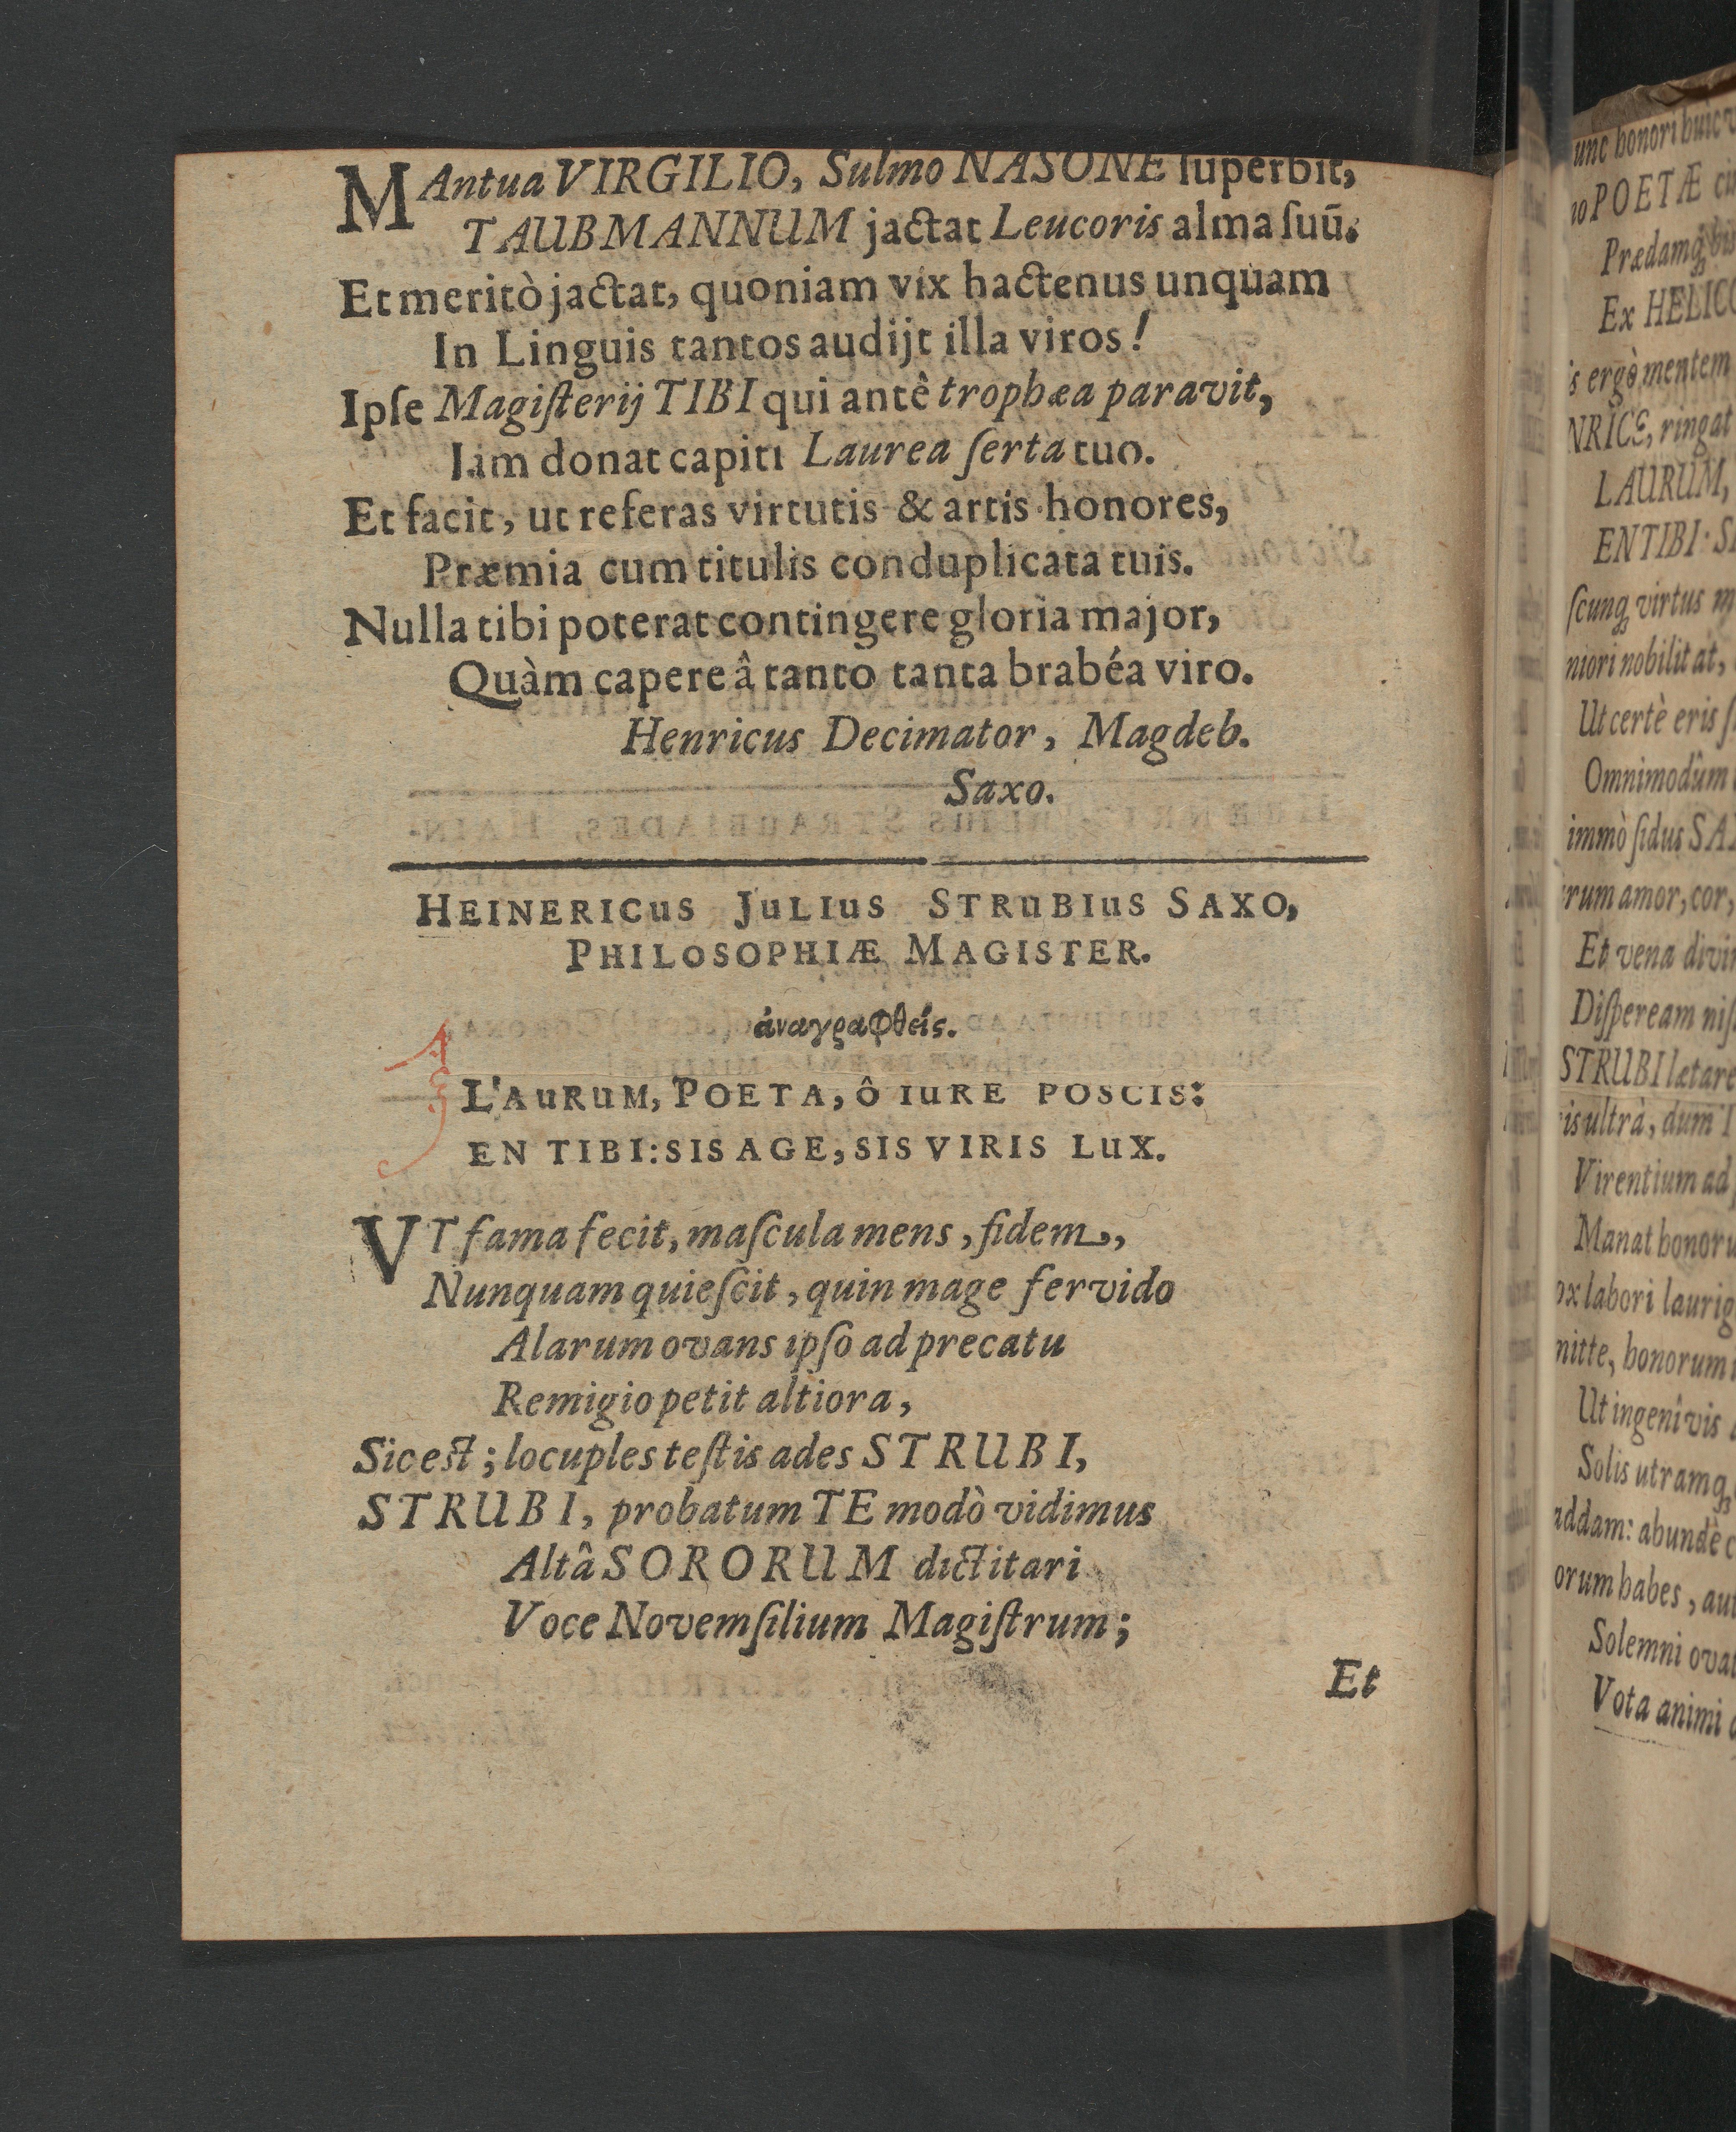 MAntua VIRGILIO, Sulmo NASONE ſuperbit,
TAUBMANNUM jactat Leucoris alma ſuū.
Et meritò jactat, quoniam vix hactenus unquam
In Linguis tantos audijt illa viros!
Ipſe Magiſterij TIBI qui antê trophæa paravit,
Iam donat capiti Laurea ſerta tuo.
Et facit, ut referas virtutis & artis honores,
Præmia cum titulis conduplicata tuis.
Nulla tibi poterat contingere gloria major,
Quàm capere â tanto tanta brabéa viro.
Henricus Decimator, Magdeb.
Saxo.
HEINERICuS JuLIuS STRuBIuS SAXO,
PHILOSOPHIÆ MAGISTER.
ἀναγραφθείς.
L'AuRuM, POETA, Ô IuRE POSCIS:
EN TIBI: SIS AGE, SIS VIRIS LuX.
VT fama fecit, maſcula mens, fidem,
Nunquam quieſcit, quin mage fervido
Alarum ovans ipſo ad precatu
Remigio petit altiora,
Sic est; locuples teſtis ades STRUBI,
STRUBI, probatum TE modò vidimus
Altâ SORORUM dictitari
Voce Novemſilium Magiſtrum;
Et
unc honori huic
no POETÆ
Prædamq́;
Ex HELICO
is ergò mentem
NRICE, ringat
LAURUM,
EN TIBI: SI
ſcunq; virtus
niori nobilitat,
Ut certè eris
Omnimodûm
immò ſidus SA
rum amor, cor,
Et vena divi
Diſpeream niſ
STRUBI lætare
is ultrà, dum
Virentium ad
Manat honoru
ox labori laurig
mitte, honorum
Ut ingenî vis
Solis utramq;
addam: abundè
orum habes, aut
Solemni ova
Vota animi